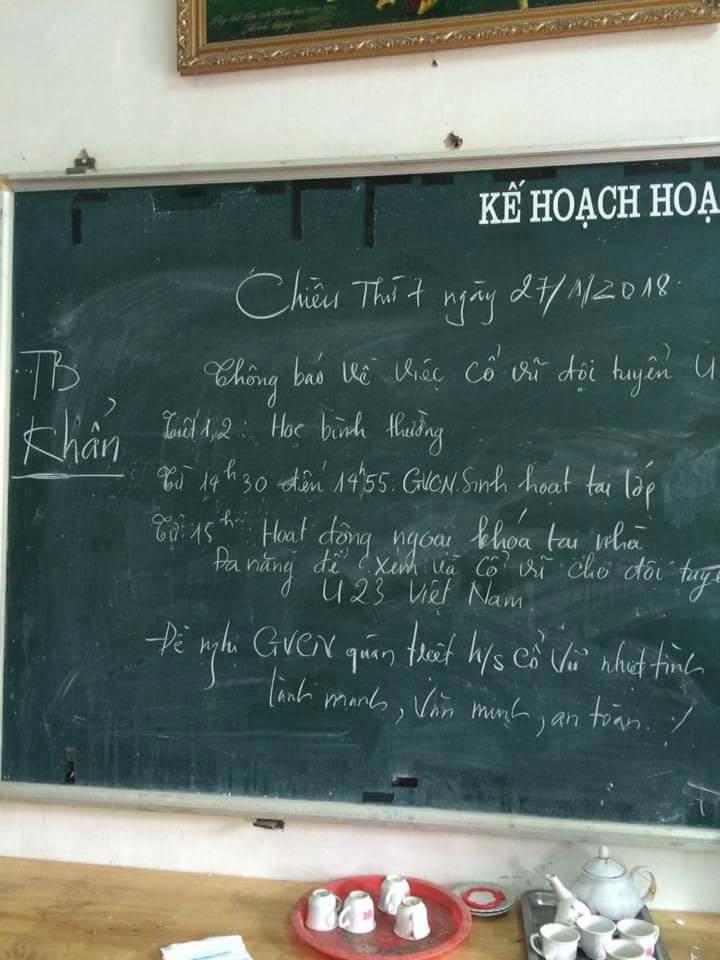 KẾ HOẠCH HOẠ
Chiều Thứ 7 ngày 27/1/2018
TB
Khẩn
Thông báo về việc cổ vũ đội tuyển U
Tiết 1,2: Học bình thường
Từ 14h30 đến 14h55. GVCN Sinh hoạt tại lớp
Từ 15h Hoạt động ngoại khóa tại nhà
Đa năng để xem và cổ vũ cho đội tuyể
U23 Việt Nam.
Đề nghị GVCN quán triệt h/s cổ vũ nhiệt tình
lành mạnh, văn minh, an toàn./